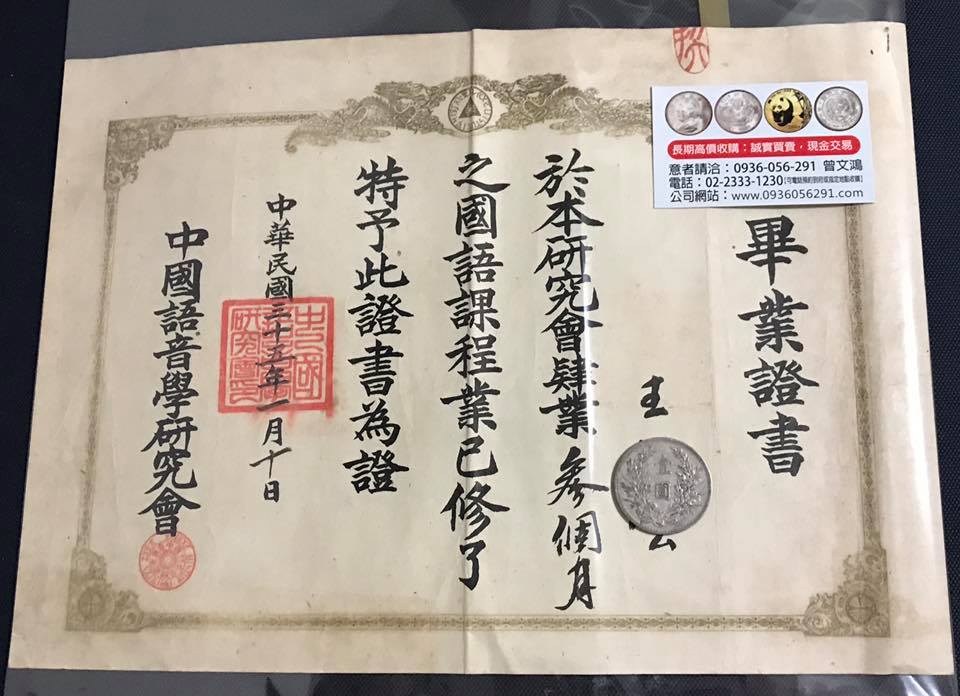 畢業證書
王
於本研究會肄業參個月
之國語課程業已修了
特予此證書為證
中華民國三十五年一月十日
中國語音學研究會
壹圓
長期高價收購：誠實買賣，現金交易
意者請洽：0936-056-291 曾文鴻
電話：02-2333-1230
公司網站：www.0936056291.com